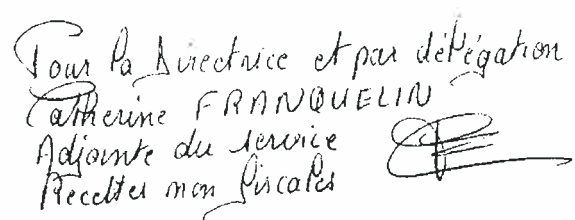 Pour la Directrice et par délégation
Catherine FRANQUELIN
Adjointe du service
Recettes non fiscales